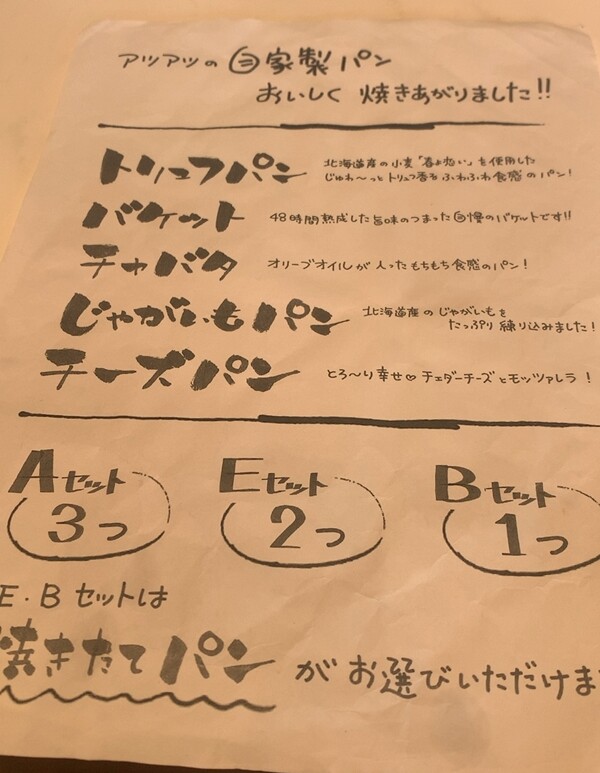 アツアツの自家製パン
おいしく 焼きあがりました!!
トリュフパン 北海道産の小麦「春よ恋い」を使用した
じゅわ〜っとトリュフ香る ふわふわ食感のパン!
バケット 48時間熟成した旨味のつまった自慢のバケットです!!
チャバタ オリーブオイルが入ったもちもち食感のパン!
じゃがいもパン 北海道産のじゃがいもを
たっぷり練り込みました!
チーズパン とろ〜り幸せ♡チェダーチーズとモッツァレラ!
Aセット Eセット Bセット
3つ 2つ 1つ
E・Bセットは
焼きたてパン がお選びいただけま